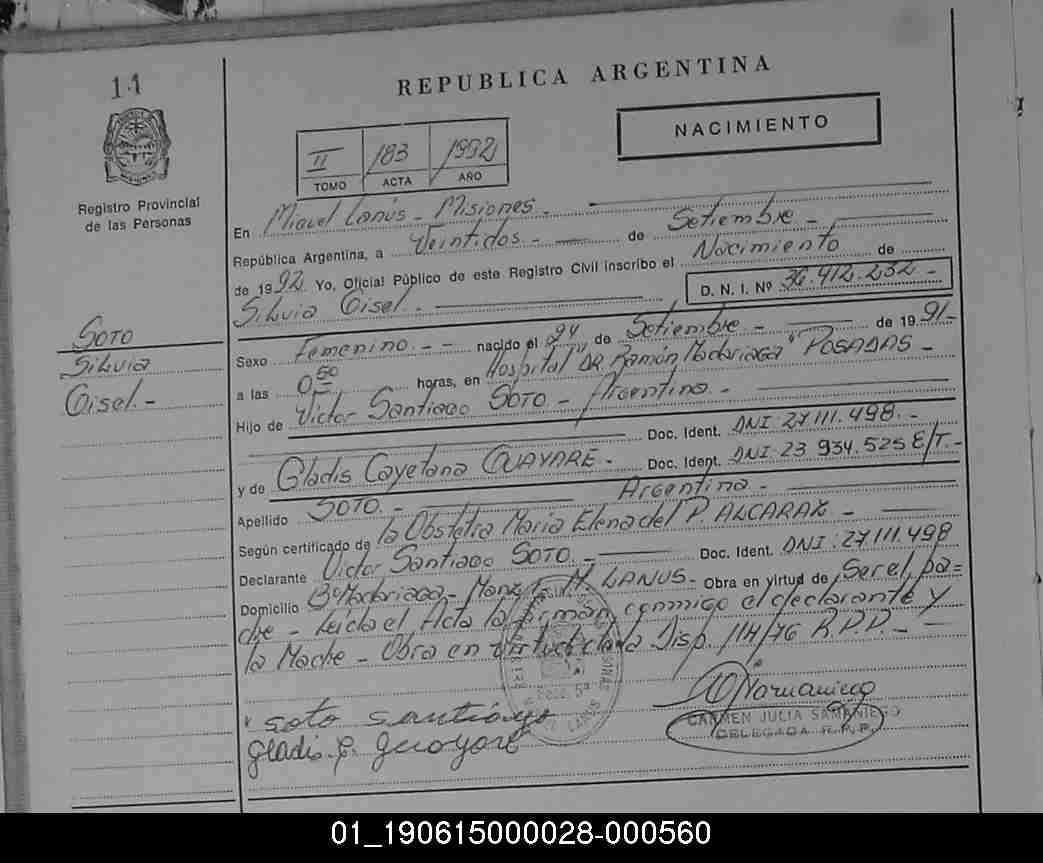 11
REPUBLICA ARGENTINA
NACIMIENTO
II 183 1992
TOMO ACTA AÑO
Registro Provincial
de las Personas
En Miguel Lanús - Misiones -
República Argentina, a Veintidos - de Setiembre -
de 1992 Yo, Oficial Público de este Registro Civil inscribo el Nacimiento de
Silvia Gisel.- D. N. I. Nº 36.412.232 -
SOTO
Silvia
Gisel.-
Sexo Femenino - - nacido el 24 de Setiembre - de 19 91-
a las 0,50 horas, en Hospital "DR. Ramón Madariaga" POSADAS -
Hijo de Victor Santiago SOTO - Argentino -
Doc. Ident. DNI: 27 111.498.-
y de Gladis Cayetana GUAYARE - Doc. Ident. DNI: 23 934.525 E/T.-
Argentina -
Apellido SOTO.-
Según certificado de la Obstetra Maria Elena del P. ALCARAZ -
Declarante Victor Santiago SOTO - Doc. Ident. DNI: 27 111 498
Domicilio Bº Madariaga - Manz M. LANUS - Obra en virtud de Ser el pa=
dre - Leida el Acta la firman conmigo el declarante y
la Madre - Obra en virtud de la Disp. 114/76 R.P.P. -
soto santiago
gladis
CARMEN JULIA SAMANIEGO
DELEGADA R.P.P.
01_190615000028-000560